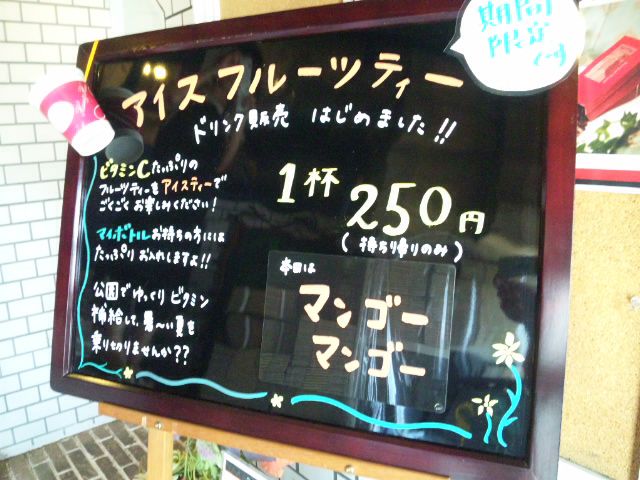 期間
限定
です
アイスフルーツティー
ドリンク販売 はじめました!!
ビタミンCたっぷりの
フルーツティーをアイスティーで
ごくごくお楽しみください!
マイボトルお持ちの方には
たっぷりお入れしますよ!!
公園でゆっくりビタミン
補給して、暑〜い夏を
乗りきりませんか??
1杯 250円
(持ち帰りのみ)
本日は
マンゴー
マンゴー